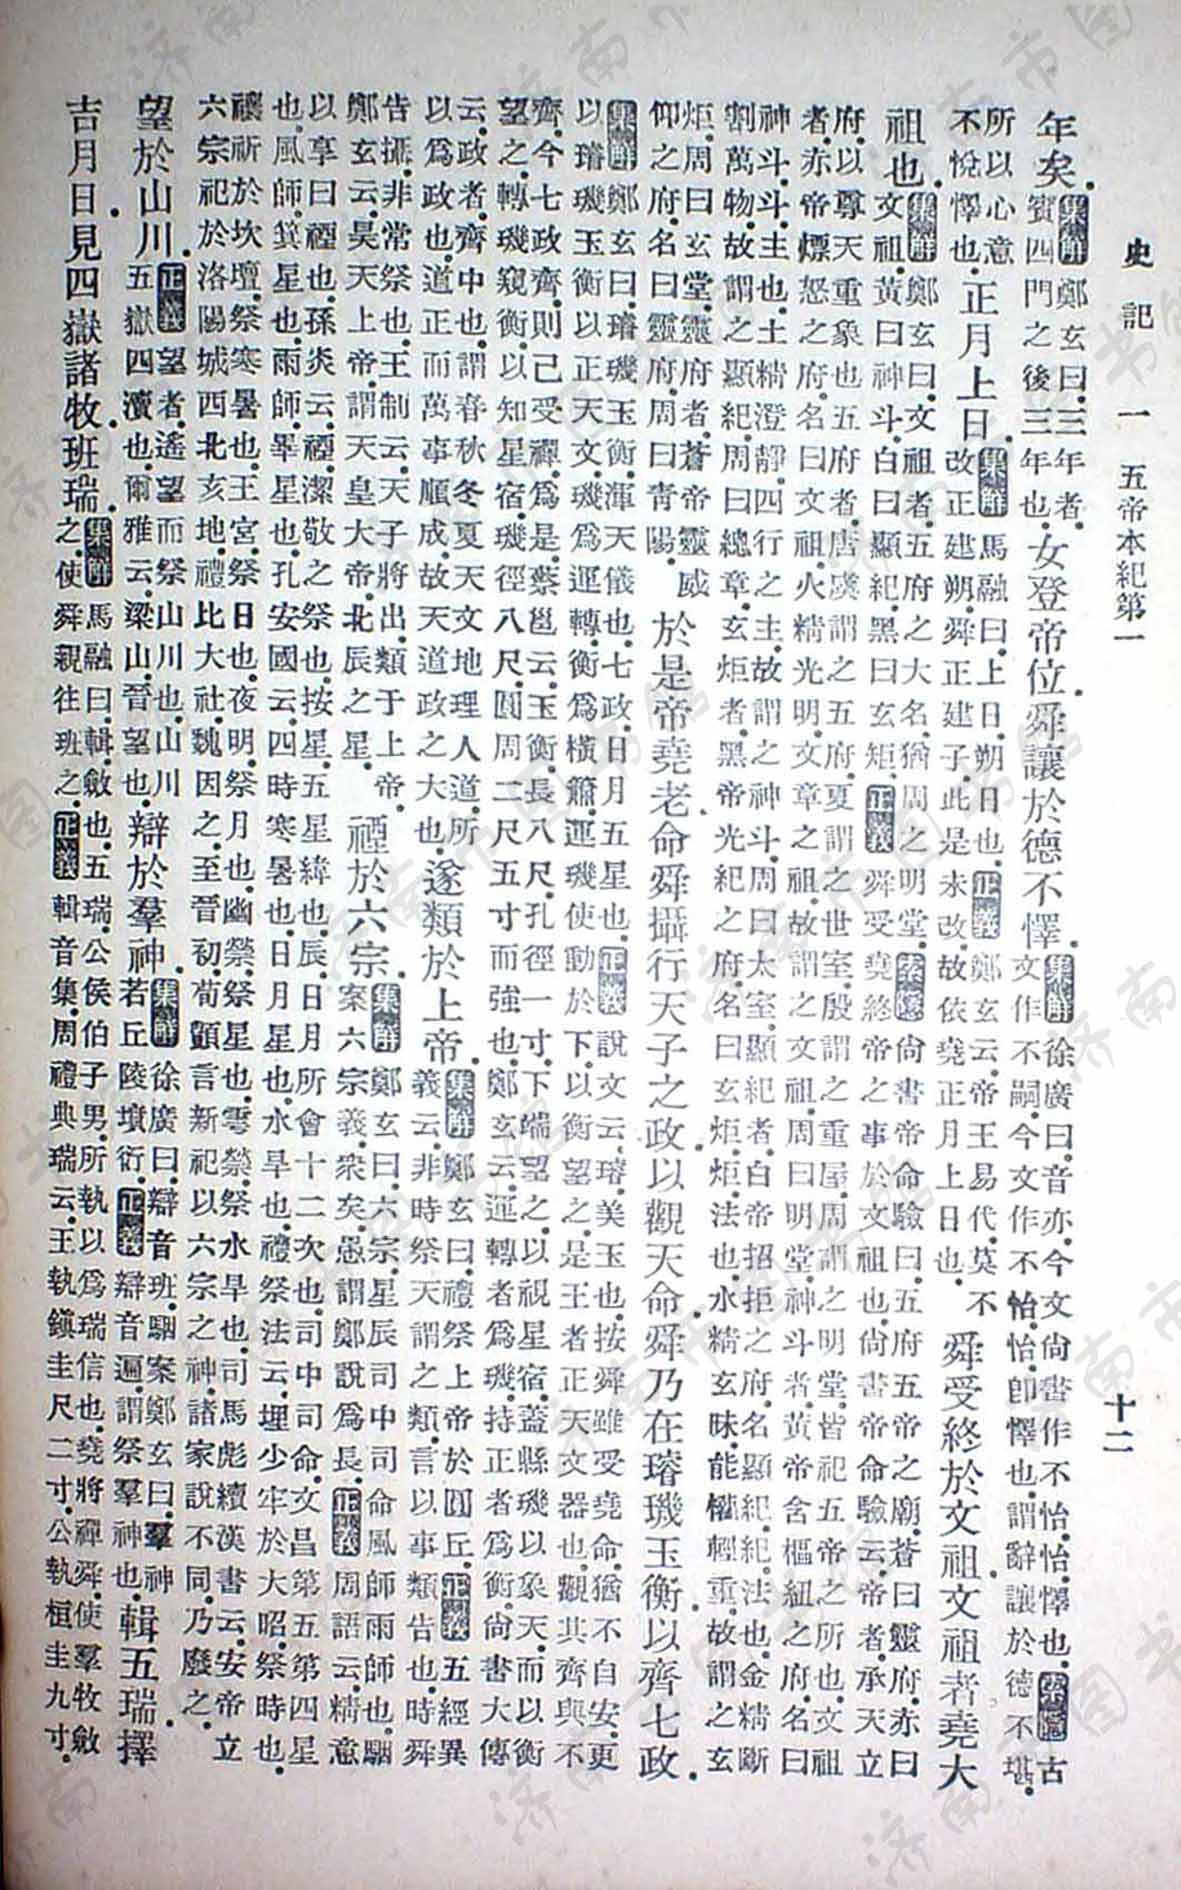 史記 一 五帝本紀第一 十二
年矣。集解鄭玄曰三年者。賓四門之後三年也。女登帝位。舜讓於德不懌。集解徐廣曰。音亦。今文尚書作不怡。怡。懌也。索隱古文作不嗣。今文作不怡。怡卽懌也。謂辭讓於德不堪。
所以心意不悅懌也。正月上日。集解馬融曰。上日。朔日也。正義鄭玄云。帝王易代。莫不改正建朔。舜正建子。此是未改。故依堯正月上日也。舜受終於文祖。文祖者堯大
祖也。集解鄭玄曰。文祖者。五府之大名。猶周之明堂。索隱尚書帝命驗曰。五府五帝之廟。蒼曰靈府。赤曰文祖。黃曰神斗。白曰顯紀。黑曰玄矩。正義舜受堯終帝之事於文祖也。尚書帝命驗云。帝者承天立
府。以尊天重象也。五府者。唐虞謂之五府。夏謂之世室。殷謂之重屋。周謂之明堂。皆祀五帝之所也。文祖
者。赤帝熛怒之府。名曰文祖。火精光明。文章之祖。故謂之文祖。周曰明堂。神斗者。黃帝含樞紐之府。名曰
神斗。斗。主也。土精澄靜。四行之主。故謂之神斗。周曰太室。顯紀者。白帝招拒之府。名顯紀。紀。法也。金精斷
割萬物。故謂之顯紀。周曰總章。玄炬者。黑帝光紀之府。名曰玄炬。炬。法也。水精玄昧。能權輕重。故謂之玄
炬。周曰玄堂。靈府者。蒼帝靈威仰之府。名曰靈府。周曰青陽。於是帝堯老。命舜攝行天子之政。以觀天命。舜乃在璿璣玉衡。以齊七政。
集解鄭玄曰。璿璣玉衡。渾天儀也。七政。日月五星也。正義說文云。璿。美玉也。按舜雖受堯命。猶不自安。更
以璿璣玉衡以正天文。璣爲運轉。衡爲橫簫。運璣使動於下。以衡望之。是王者正天文器也。觀其齊與不
齊。今七政齊。則己受禪爲是。蔡邕云。玉衡長八尺。孔徑一寸。下端望之。以視星宿。蓋縣璣以象天。而以衡
望之。轉璣窺衡。以知星宿。璣徑八尺。圓周二尺五寸而強也。鄭玄云。運轉者爲璣。持正者爲衡。尚書大傳
云。政者。齊中也。謂春秋冬夏天文地理人道。所以爲政也。道正而萬事順成。故天道政之大也。遂類於上帝。集解鄭玄曰。禮祭上帝於圜丘。正義五經異義云。非時祭天謂之類。言以事類告也。時舜
告攝。非常祭也。王制云。天子將出。類于上帝。鄭玄云。昊天上帝。謂天皇大帝。北辰之星。禋於六宗。集解鄭玄曰。六宗。星辰司中司命風師雨師也。駰案六宗義衆矣。愚謂鄭說爲長。正義周語云。精意
以享曰禋也。孫炎云。禋。潔敬之祭也。按星。五星緯也。辰。日月所會十二次也。司中司命。文昌第五第四星
也。風師。箕星也。雨師。畢星也。孔安國云。四時寒暑也。日月星也。水旱也。禮祭法云。埋少牢於大昭。祭時也。
禳祈於坎壇。祭寒暑也。王宮。祭日也。夜明。祭月也。幽禜。祭星也。雩禜。祭水旱也。司馬彪續漢書云。安帝立
六宗。祀於洛陽城西北亥地。禮比大社。魏因之。至晉初。荀顗言新祀以六宗之神。諸家說不同。乃廢之。
望於山川。正義望者。遙望而祭山川也。山川五嶽四瀆也。爾雅云。梁山。晉望也。辯於羣神。集解徐廣曰。辯音班。駰案鄭玄曰。羣神若丘陵墳衍。正義辯音遍。謂祭羣神也。輯五瑞。擇
吉月日。見四嶽諸牧。班瑞。集解馬融曰。輯。斂也。五瑞。公侯伯子男所執以爲瑞信也。堯將禪舜。使羣牧斂之。使舜親往班之。正義輯音集。周禮典瑞云。王執鎭圭尺二寸。公執桓圭九寸。